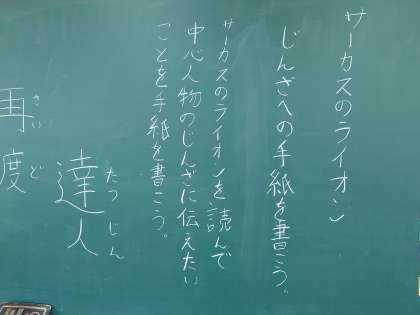 サーカスのライオン
じんざへの手紙を書こう。
サーカスのライオンを読んで
中心人物のじんざに伝えたい
ことを手紙を書こう。
達人
たつじん
再度
さいど